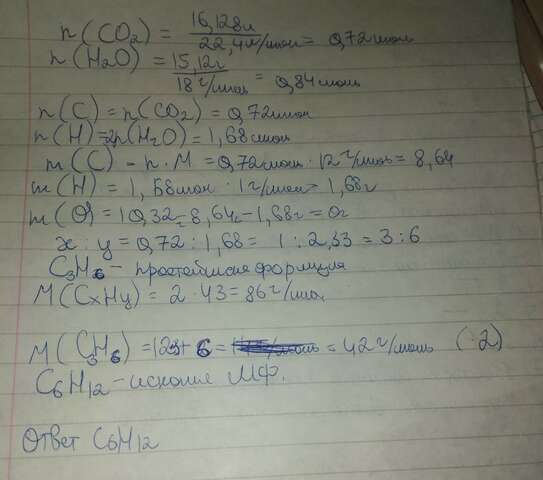 n(CO₂) = 16,128л / 22,4л/моль = 0,72моль
n(H₂O) = 15,12г / 18г/моль = 0,84моль
n(C) = n(CO₂) = 0,72моль
n(H) = 2n(H₂O) = 1,68моль
m(C) = n · M = 0,72моль · 12г/моль = 8,64
m(H) = 1,68моль · 1г/моль = 1,68г
m(O) = 10,32г - 8,64г - 1,68г = 0г
x : y = 0,72 : 1,68 = 1 : 2,33 = 3 : 6
C₃H₆ - простейшая формула
M(CxHy) = 2 · 43 = 86г/моль
M(C₃H₆) = 12·3 + 6 = = 42г/моль (·2)
C₆H₁₂ - искомая МФ.
Ответ C₆H₁₂